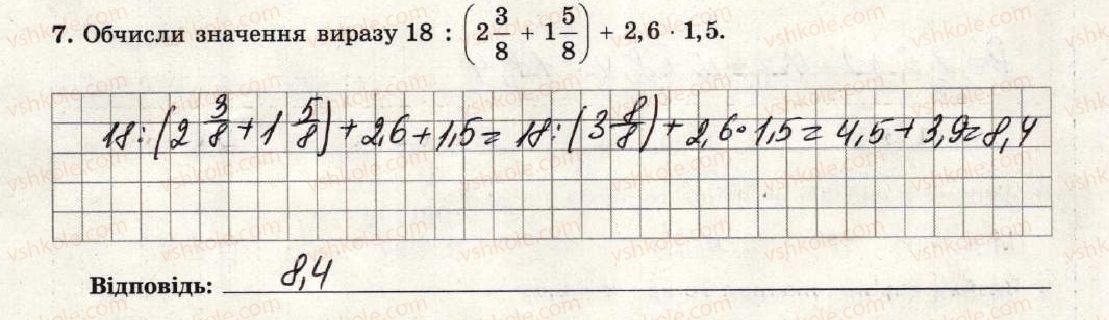 7. Обчисли значення виразу 18 : (2 3/8 + 1 5/8) + 2,6 · 1,5.
18:(2 3/8 + 1 5/8) + 2,6 + 1,5 = 18:(3 8/8) + 2,6 · 1,5 = 4,5 + 3,9 = 8,4
Відповідь: 8,4